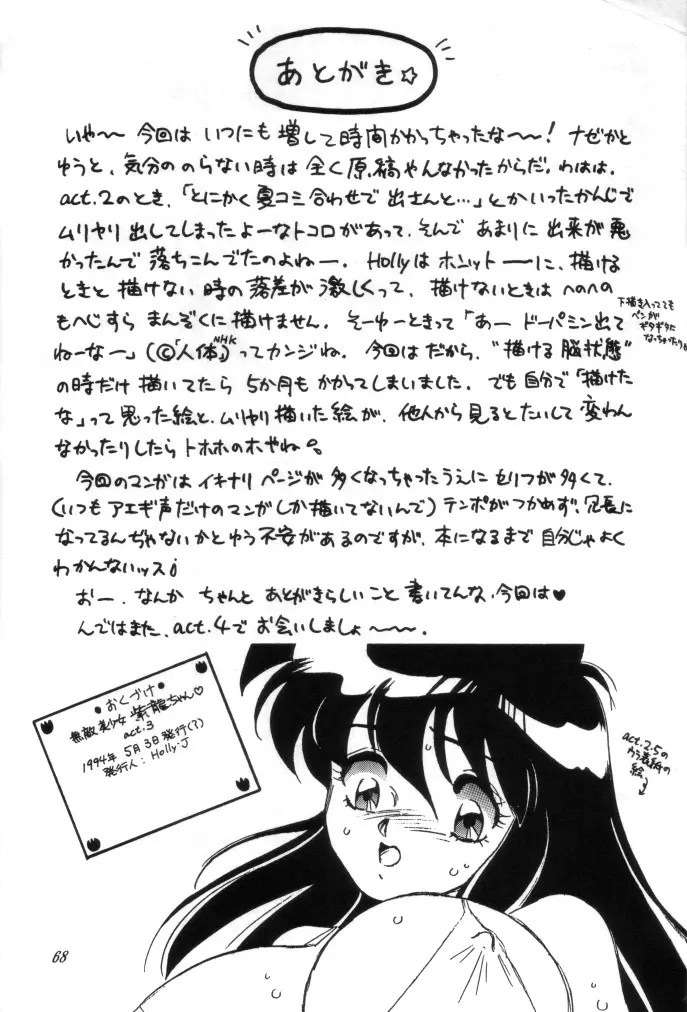 あとがき☆
いや〜〜 今回は いつにも 増して 時間かかっちゃったな〜〜! ナゼかと
ゆうと、気分の のらない 時は 全く 原稿やんなかったからだ。わはは。
act.2のとき、「とにかく 夏コミ合わせで 出さんと…」とかいったかんじで
ムリヤリ 出してしまったよーなトコロがあって、そんで あまりに 出来が 悪
かったんで 落ちこんでたのよねー。 Hollyは ホニットーーに、描ける
ときと 描けない 時の 落差が 激しくって、描けないときは へのへの
もへじすら まんぞくに 描けません。そーゆーときって「あー ドーパミン出て
ねーなー」(©「人体」NHK)ってカンジね。 今回は だから、"描ける脳状態"
の時だけ 描いてたら 5か月も かかってしまいました。でも自分で「描けた
な」って思った絵と、ムリヤリ描いた絵が、他人から見るとたいして 変わん
なかったりしたら トホホのホやね。
下描き入ってても
ペンが
ギタギタに
なっちゃったり
今回のマンガは イキナリ ページが 多くなっちゃったうえに セリフが多くて、
(いつも アエギ声だけのマンガしか描いてないんで) テンポがつかめず、冗長に
なってるんぢゃないかとゆう不安があるのですが、本になるまで 自分じゃよく
わかんないッス
おー、なんか ちゃんと あとがきらしいこと 書いてんな、今回は♥
んではまた、act.4で お会いしましょ〜〜〜。
●おくづけ●
無敵美少女 紫龍ちゃん♡
act.3
1994年 5月3日発行(?)
発行人:Holly.J
act.2.5の
ウラ表紙の
絵
68